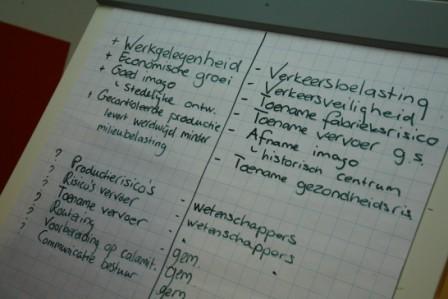 + Werkgelegenheid
+ Economische groei
+ Goed imago
↳ stedelijke ontw.
+ Gecontroleerde productie
levert wereldwijd minder
milieubelasting
- Verkeersbelasting
- Verkeersveiligheid
- Toename fabrieksrisico
- Toename vervoer g.s.
- Afname imago
↳ historisch centrum
- Toename gezondheidsris
? Producterisico's
? Risico's vervoer - wetenschappers
? Toename vervoer - wetenschappers
? Routering - "
? Voorbereiding op calamit. - gem. "
? Communicatie bestuur - gem
- gem